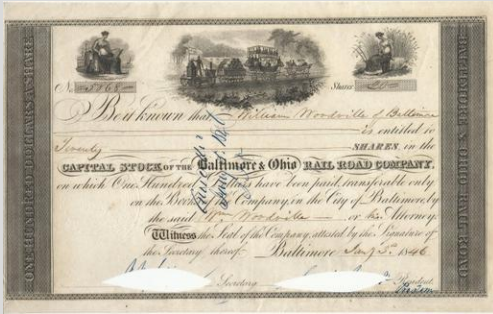 No. 5868 Shares 20
Be it known that William Woodville of Baltimore
is entitled to
Twenty SHARES, in the
CAPITAL STOCK OF THE Baltimore & Ohio RAIL ROAD COMPANY,
on which One Hundred Dollars have been paid, transferable only
on the Books of the Company, in the City of Baltimore, by
the said Wm. Woodville or his Attorney.
Witness the Seal of the Company, attested by the Signature of
the Secretary thereof. Baltimore Jany 5th 1846
Secretary President
ONE HUNDRED DOLLARS A SHARE
BALTIMORE & OHIO RAIL ROAD